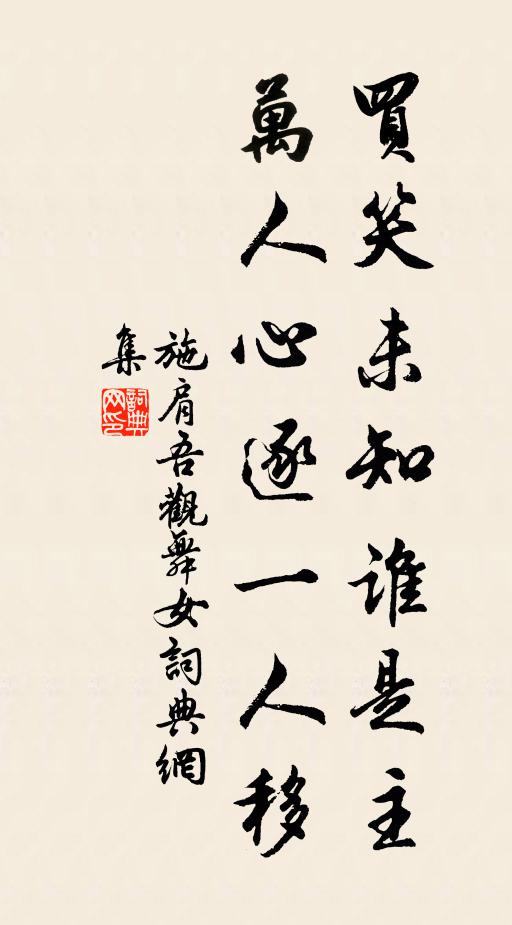 買笑未知誰是主
萬人心逐一人移
施肩吾觀舞女詞典網
集
詞典
网印